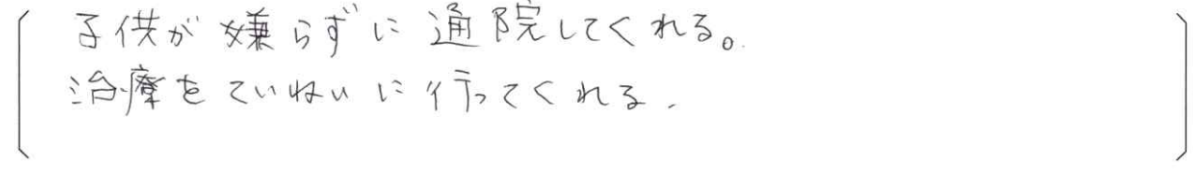 子供が嫌らずに通院してくれる。
治療をていねいに行ってくれる.